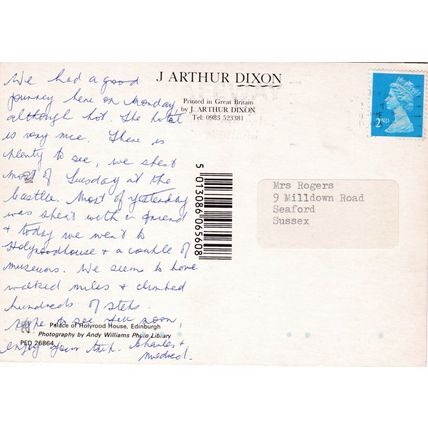 We had a good
journey here on Monday,
although hot. The hotel
is very nice. There is
plenty to see, we spent
most of Tuesday at the
Castle. Most of yesterday
was spent with a friend
& today we went to
Holyroodhouse & a couple of
museums. We seem to have
walked miles & climbed
hundreds of steps.
Hope to see you soon,
enjoy your
Charles &
Mildred.
Palace of Holyrood House, Edinburgh
Photography by Andy Williams Photo Library
PED 26864
J ARTHUR DIXON
Printed in Great Britain
by J. ARTHUR DIXON
Tel: 0983 523381
5 013086 065608
2ND
Mrs Rogers
9 Milldown Road
Seaford
Sussex